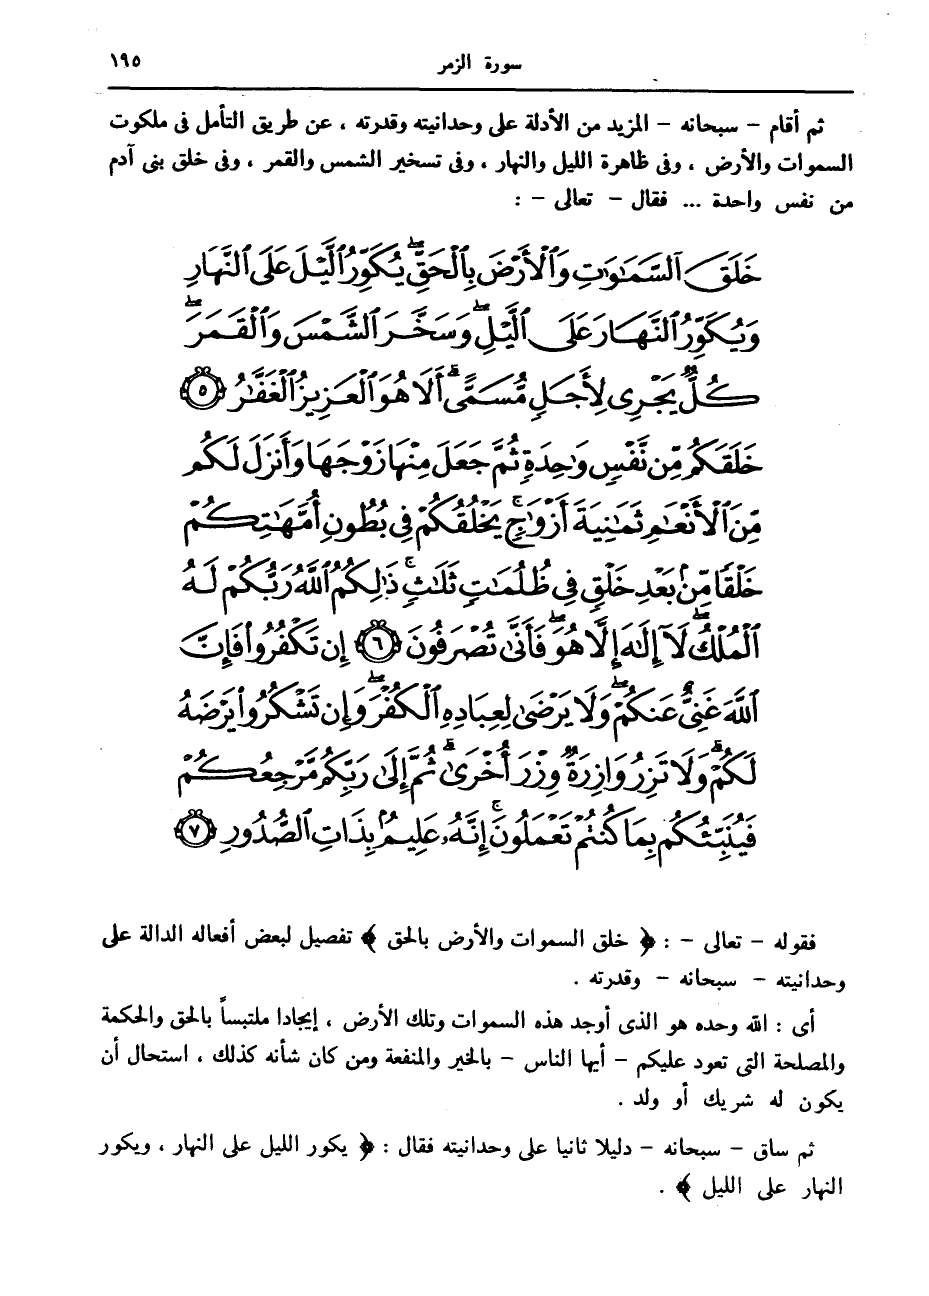 سورة الزمر ١٩٥
ثم أقام – سبحانه – المزيد من الأدلة على وحدانيته وقدرته ، عن طريق التأمل فى ملكوت
السموات والأرض ، وفى ظاهرة الليل والنهار ، وفى تسخير الشمس والقمر ، وفى خلق بنى آدم
من نفس واحدة ... فقال – تعالى – :
خَلَقَ ٱلسَّمَٰوَٰتِ وَٱلْأَرْضَ بِٱلْحَقِّۖ يُكَوِّرُ ٱلَّيْلَ عَلَى ٱلنَّهَارِ
وَيُكَوِّرُ ٱلنَّهَارَ عَلَى ٱلَّيْلِۖ وَسَخَّرَ ٱلشَّمْسَ وَٱلْقَمَرَۖ
كُلٌّ يَجْرِى لِأَجَلٍ مُّسَمًّىۗ أَلَا هُوَ ٱلْعَزِيزُ ٱلْغَفَّٰرُ ٥
خَلَقَكُم مِّن نَّفْسٍ وَٰحِدَةٍ ثُمَّ جَعَلَ مِنْهَا زَوْجَهَا وَأَنزَلَ لَكُم
مِّنَ ٱلْأَنْعَٰمِ ثَمَٰنِيَةَ أَزْوَٰجٍۚ يَخْلُقُكُمْ فِى بُطُونِ أُمَّهَٰتِكُمْ
خَلْقًا مِّنۢ بَعْدِ خَلْقٍ فِى ظُلُمَٰتٍ ثَلَٰثٍۚ ذَٰلِكُمُ ٱللَّهُ رَبُّكُمْ لَهُ
ٱلْمُلْكُۖ لَآ إِلَٰهَ إِلَّا هُوَۖ فَأَنَّىٰ تُصْرَفُونَ ٦ إِن تَكْفُرُوا۟ فَإِنَّ
ٱللَّهَ غَنِىٌّ عَنكُمْۖ وَلَا يَرْضَىٰ لِعِبَادِهِ ٱلْكُفْرَۖ وَإِن تَشْكُرُوا۟ يَرْضَهُ
لَكُمْۗ وَلَا تَزِرُ وَازِرَةٌ وِزْرَ أُخْرَىٰۗ ثُمَّ إِلَىٰ رَبِّكُم مَّرْجِعُكُمْ
فَيُنَبِّئُكُم بِمَا كُنتُمْ تَعْمَلُونَۚ إِنَّهُۥ عَلِيمٌۢ بِذَاتِ ٱلصُّدُورِ ٧
فقوله – تعالى – : ﴿ خلق السموات والأرض بالحق ﴾ تفصيل لبعض أفعاله الدالة على
وحدانيته – سبحانه – وقدرته .
أى : الله وحده هو الذى أوجد هذه السموات وتلك الأرض ، إيجادا ملتبساً بالحق والحكمة
والمصلحة التى تعود عليكم – أيها الناس – بالخير والمنفعة ومن كان شأنه كذلك ، استحال أن
يكون له شريك أو ولد .
ثم ساق – سبحانه – دليلا ثانيا على وحدانيته فقال : ﴿ يكور الليل على النهار ، ويكور
النهار على الليل ﴾ .